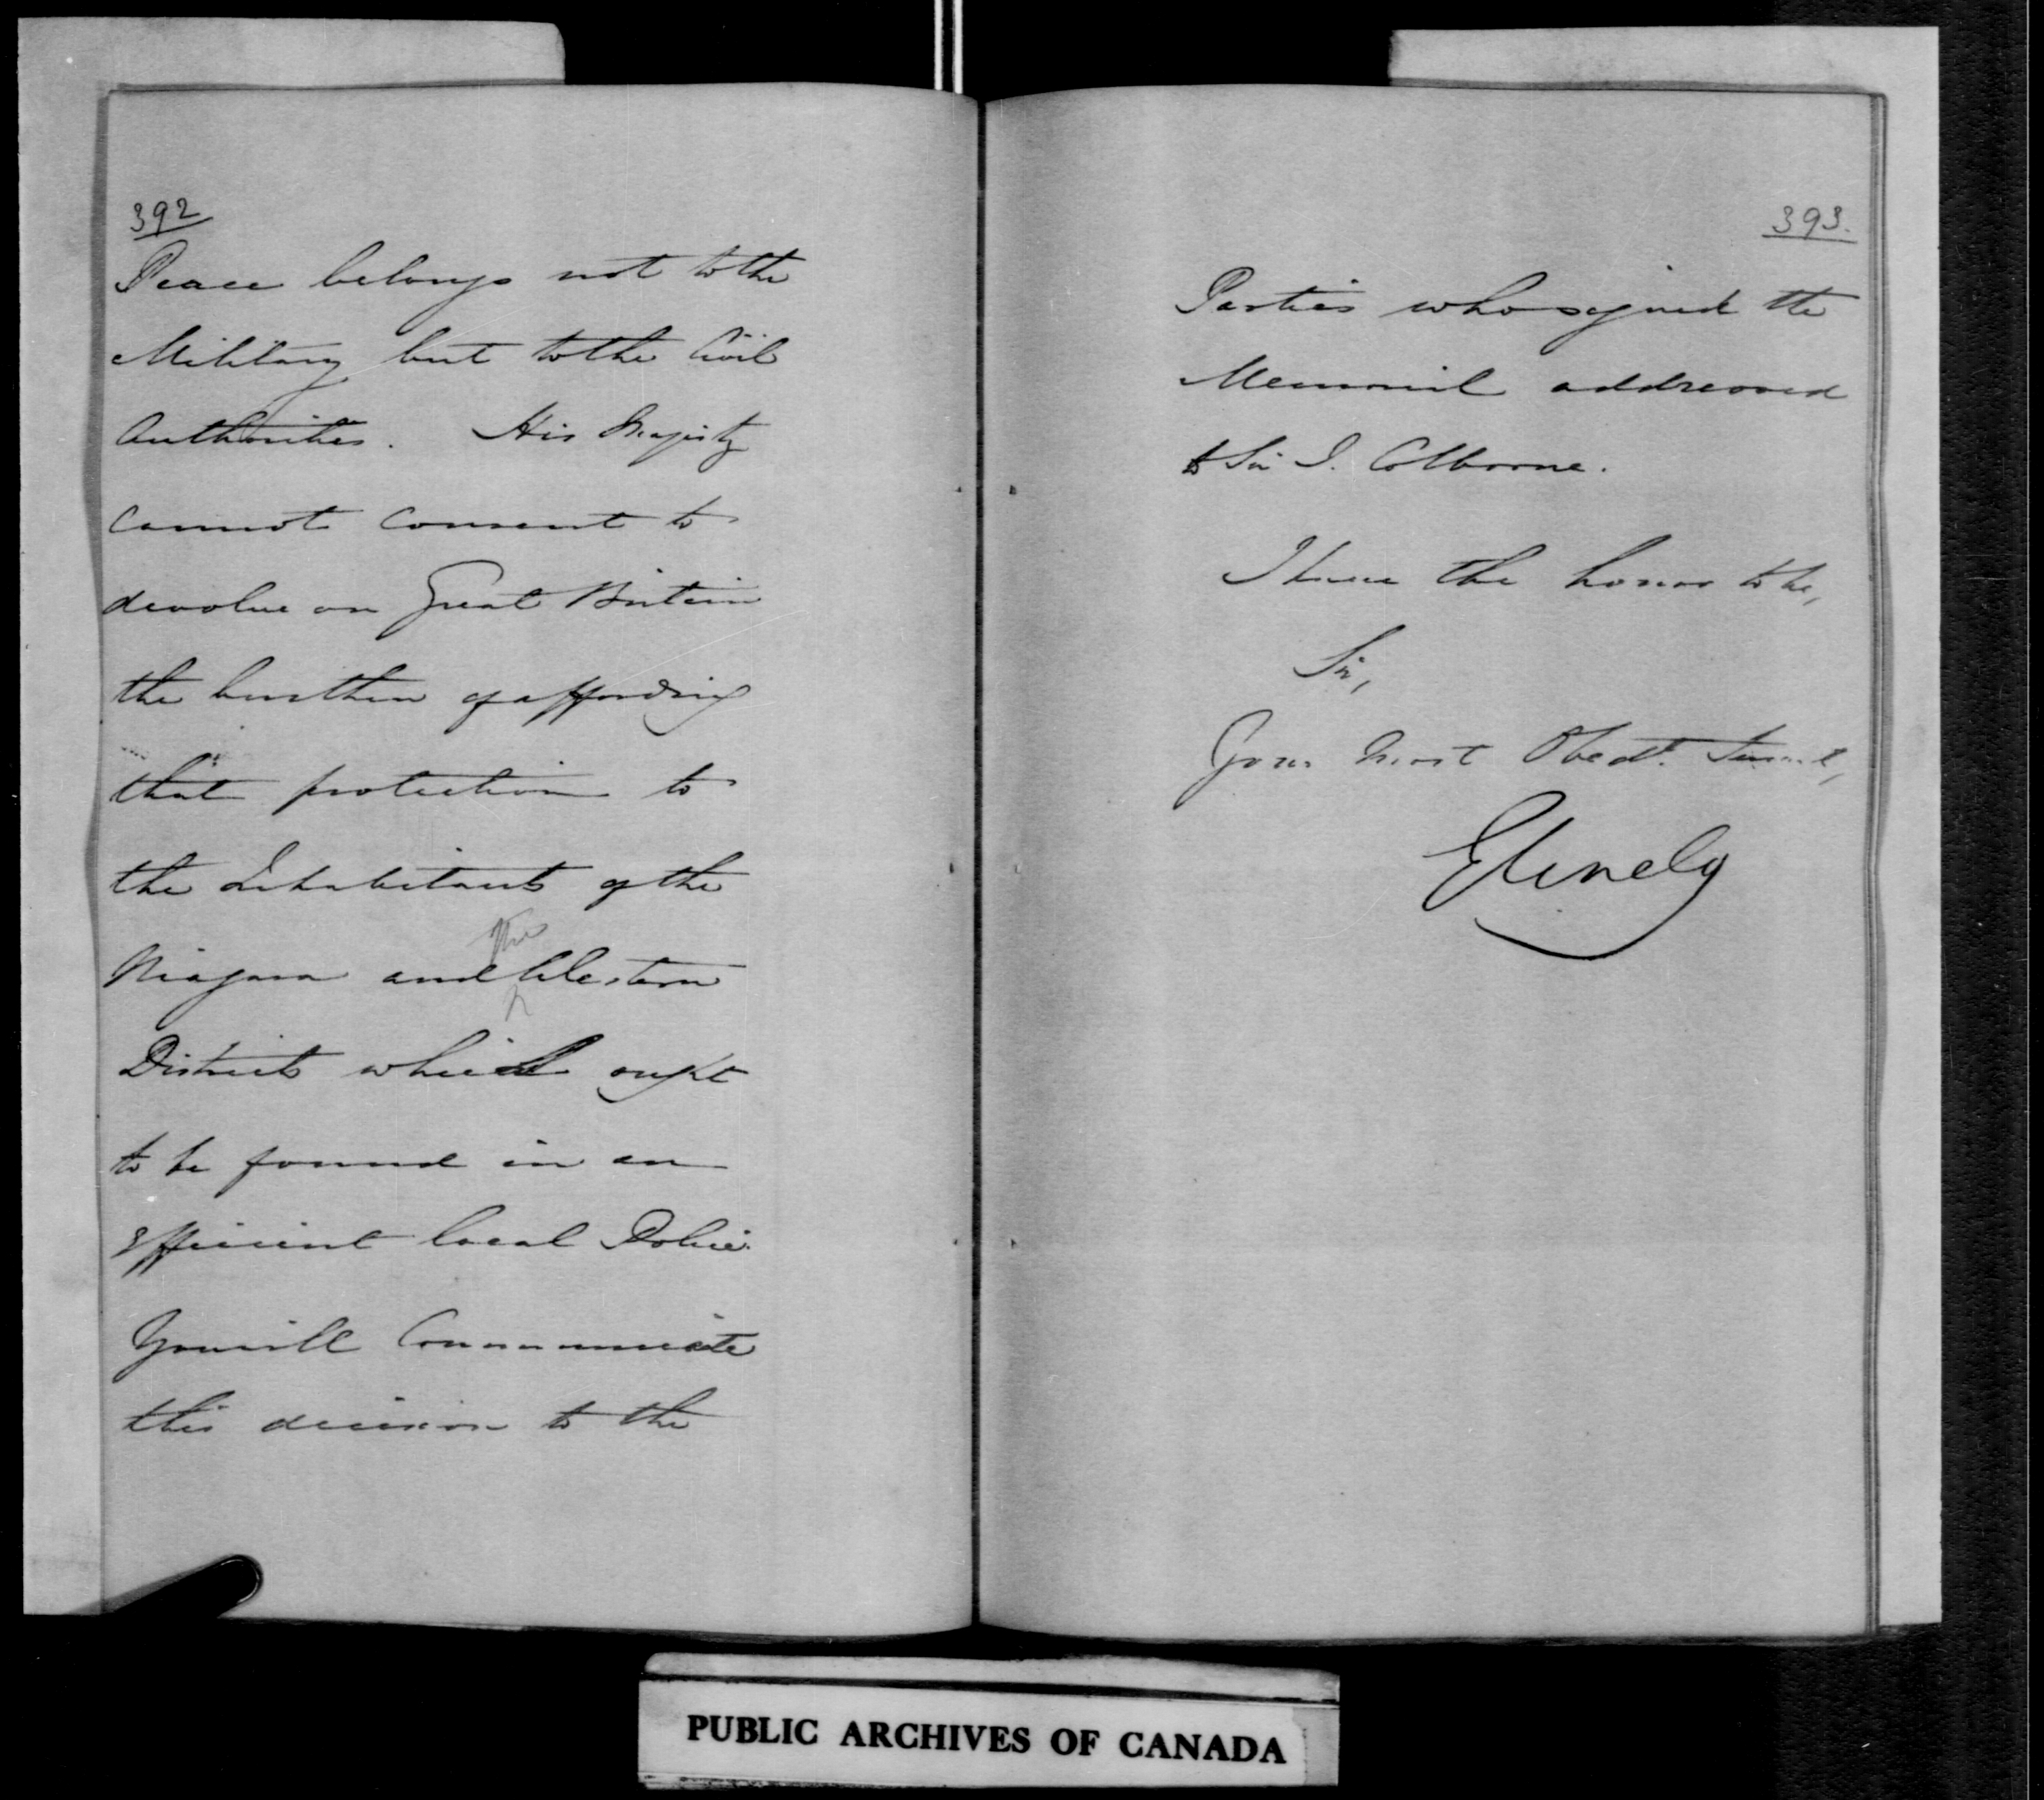 392
Peace belongs not to the
Military but to the Civil
Authorities. His Majesty
Cannot Consent to
devolve on Great Britain
the burthen of affording
that protection to
the Inhabitants of the
Niagara and the Western
Districts which ought
to be found in an
efficient local Police.
You will Communicate
this decision to the
393.
Parties who signed the
Memorial addressed
to Sir J. Colborne.
I have the honor to be,
Sir,
Your Most Obedt. Servant,
Glenelg
PUBLIC ARCHIVES OF CANADA